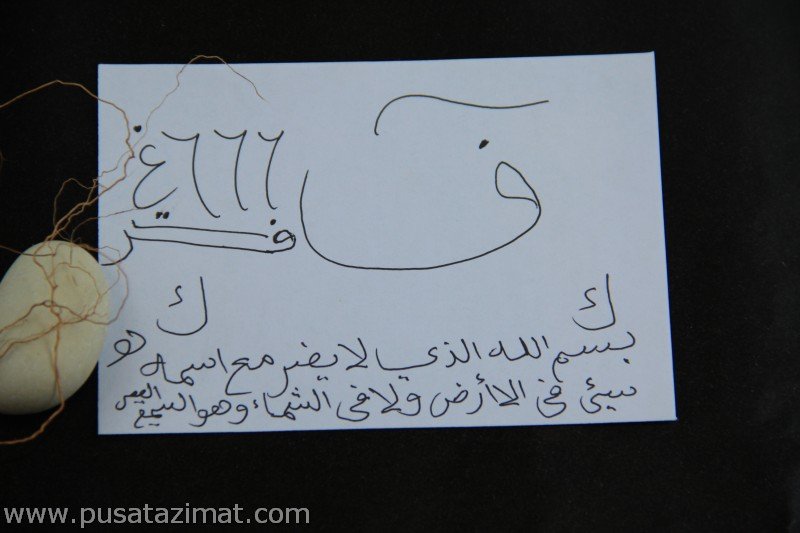 ف
٤٦٦٦
فر
ك ك
بسم الله الذي لا يضر مع اسمه
شيئ في الاأرض ولا في الشماء وهو السميع
www.pusatazimat.com